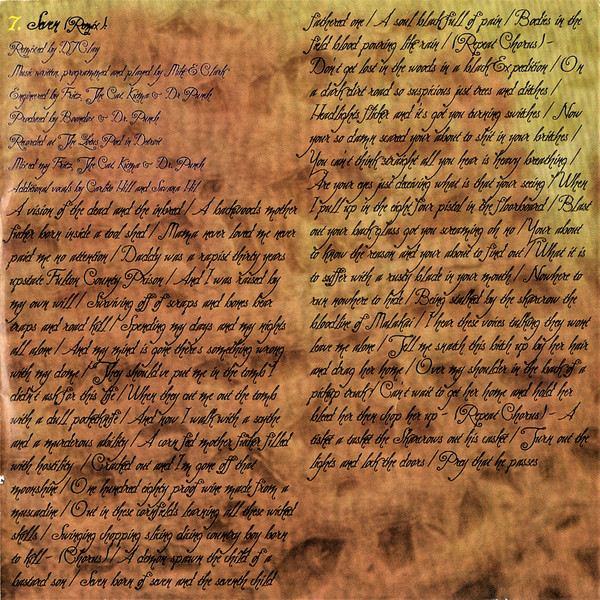 7 Seven (Remix):
Remixed by DJ Clay
Music written, programmed and played by Mike E. Clark
Engineered by Fritz, The Cat, Kuma & Dr. Punch
Produced by Boondox & Dr. Punch
Recorded at The Lotus Pod in Detroit
Mixed my Fritz, The Cat, Kuma & Dr. Punch
Additional vocals by Carlito Hill and Savana Hill
A vision of the dead and the inbred / A backwoods mother
father born inside a tool shed / Mama never loved me never
paid me no attention / Daddy was a rapist thirty years
upstate Fulton County Prison / And I was raised by
my own will / Surviving off of scraps and bones bear
craps and road kill / Spending my days and my nights
all alone / And my mind is gone there's something wrong
with my dome / "They should've put me in the tomb" I
didn't ask for this life / When they cut me out the tomb
with a dull pocketknife / And now I walk with a scythe
and a murderous ability / A corn fed mother fucker filled
with hostility / Cracked out and I'm gone off that
moonshine / One hundred eighty proof wine made from a
muscadine / Out in these cornfields learning all these wicked
skills / Swinging chopping slicing dicing country boy born
to kill - (Chorus) / A demon spawn the child of a
bastard son / Seven born of seven and the seventh child
fathered one / A soul black full of pain / Bodies in the
field blood pouring like rain / (Repeat Chorus) -
Don't get lost in the woods in a black Expedition / On
a dark dirt road so suspicious just trees and ditches /
Headlights flicker and it's got you turning switches / Now
your so damn scared your about to shit in your britches /
You can't think straight all you hear is heavy breathing /
Are your eyes just deceiving what is that your seeing / When
I pull up in the eight four pistol in the floorboard / Blast
out your back glass got you screaming oh no / Your about
to know the reason and your about to find out / What it is
to suffer with a rusty blade in your mouth / Nowhere to
run nowhere to hide / Being stalked by the sharcrow the
bloodline of Malakai / I hear these voices talking they wont
leave me alone / Tell me snatch this bitch up by her hair
and drag her home / Over my shoulder in the back of a
pickup truck / Can't wait to get her home and hold her
bleed her then chop her up - (Repeat Chorus) - A
tisket a tasket the Skarcrows out his casket / Turn out the
lights and lock the doors / Pray that he passes